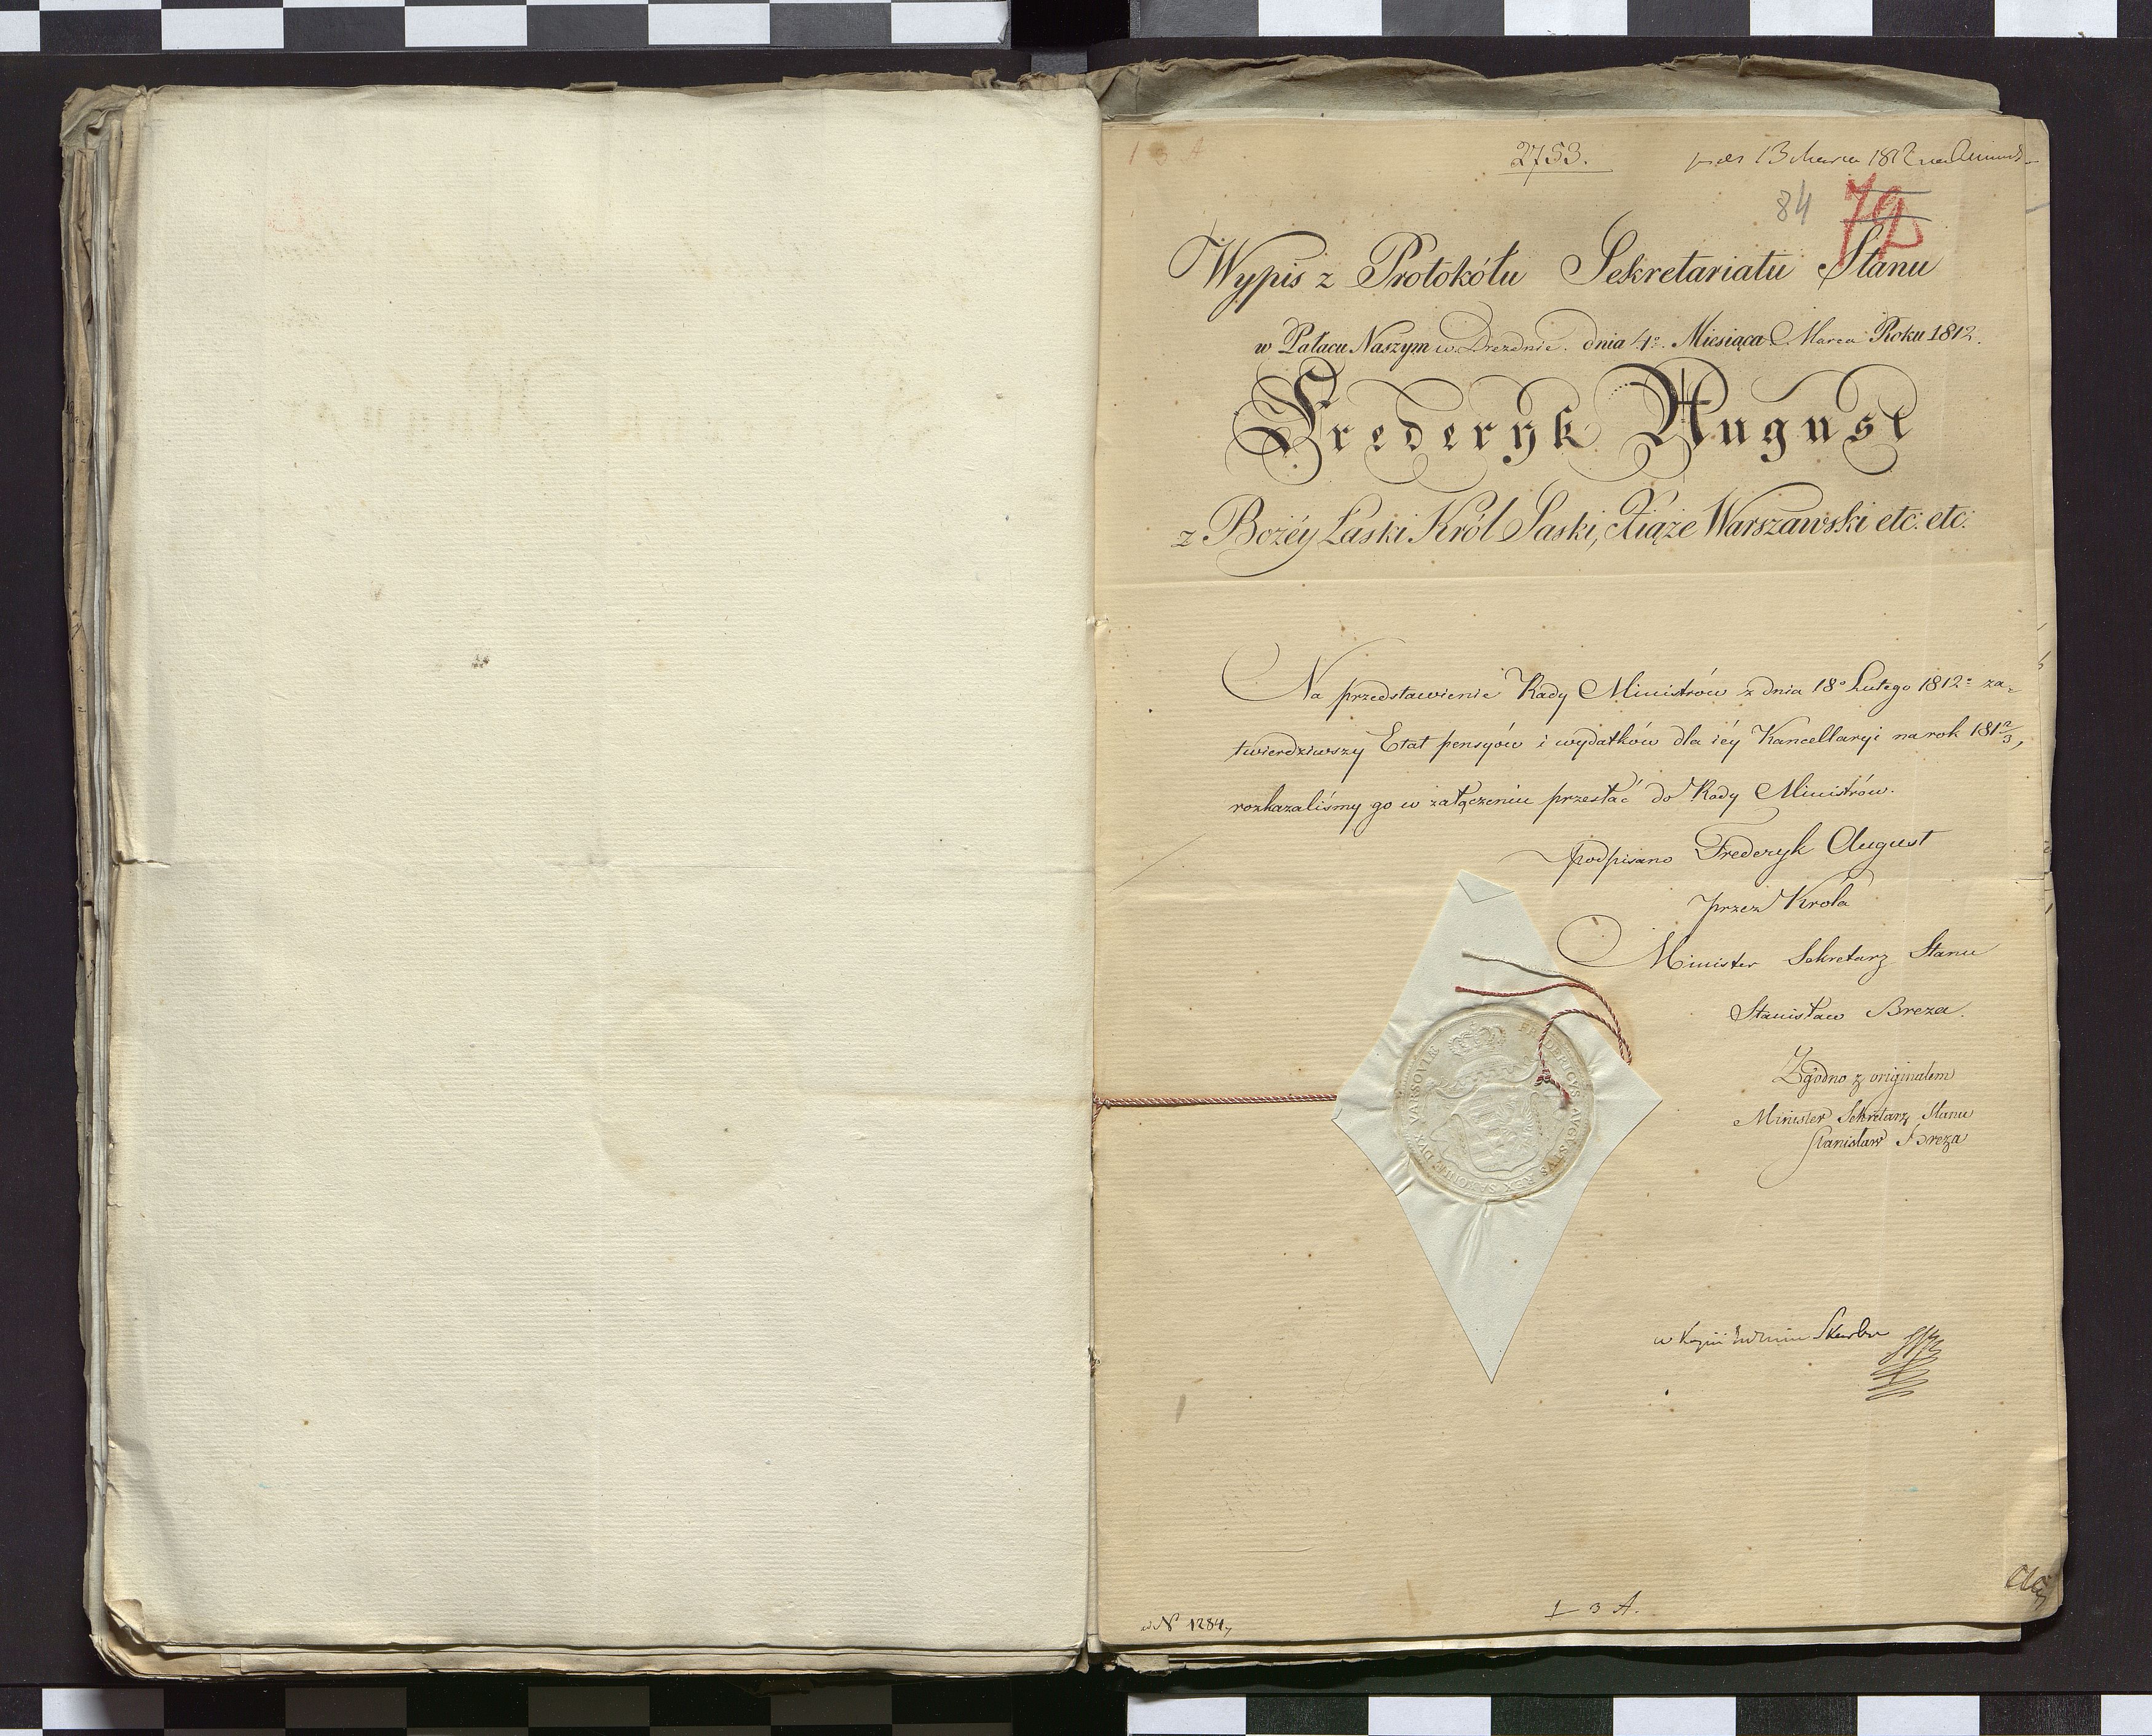 2753.
13 Marca 1812
84 72
Wypis z Protokółu Sekretariatu Stanu
w Pałacu Naszym w Dreznie. dnia 4º. Miesiąca Marca Roku 1812.
Frederyk August
z Bożéy Łaski Król Saski, Xiąże Warszawski etc: etc:
Na przedstawienie Rady Ministrów z dnia 18º Lutego 1812º za-
twierdziwszy Etat pensyów i wydatków dla iéy Kancellaryi na rok 1812/3,
rozkazaliśmy go w załączeniu przesłać do Rady Ministrów.
podpisano Frederyk August
przez Króla
Minister Sekretarz Stanu
Stanisław Breza.
FRIDERICVS AVGVSTVS REX SAXONIÆ DVX VARSOVIÆ
Zgodno z originałem
Minister Sekretarz Stanu
Stanisław Breza
Skarbu
N 1284,
1 3 A.